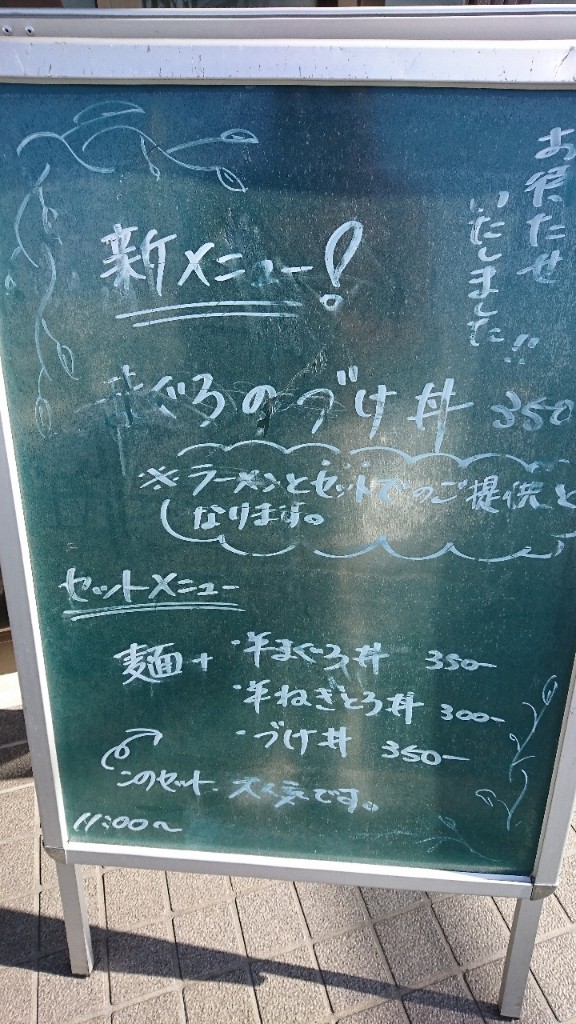 お待たせ
いたしました!!
新メニュー!
まぐろのづけ丼 350
※ラーメンとセットでのご提供と
なります。
セットメニュー
麺+ ・半まぐろ丼 350-
・半ねぎとろ丼 300-
・づけ丼 350-
このセット、大人気です。
11:00~